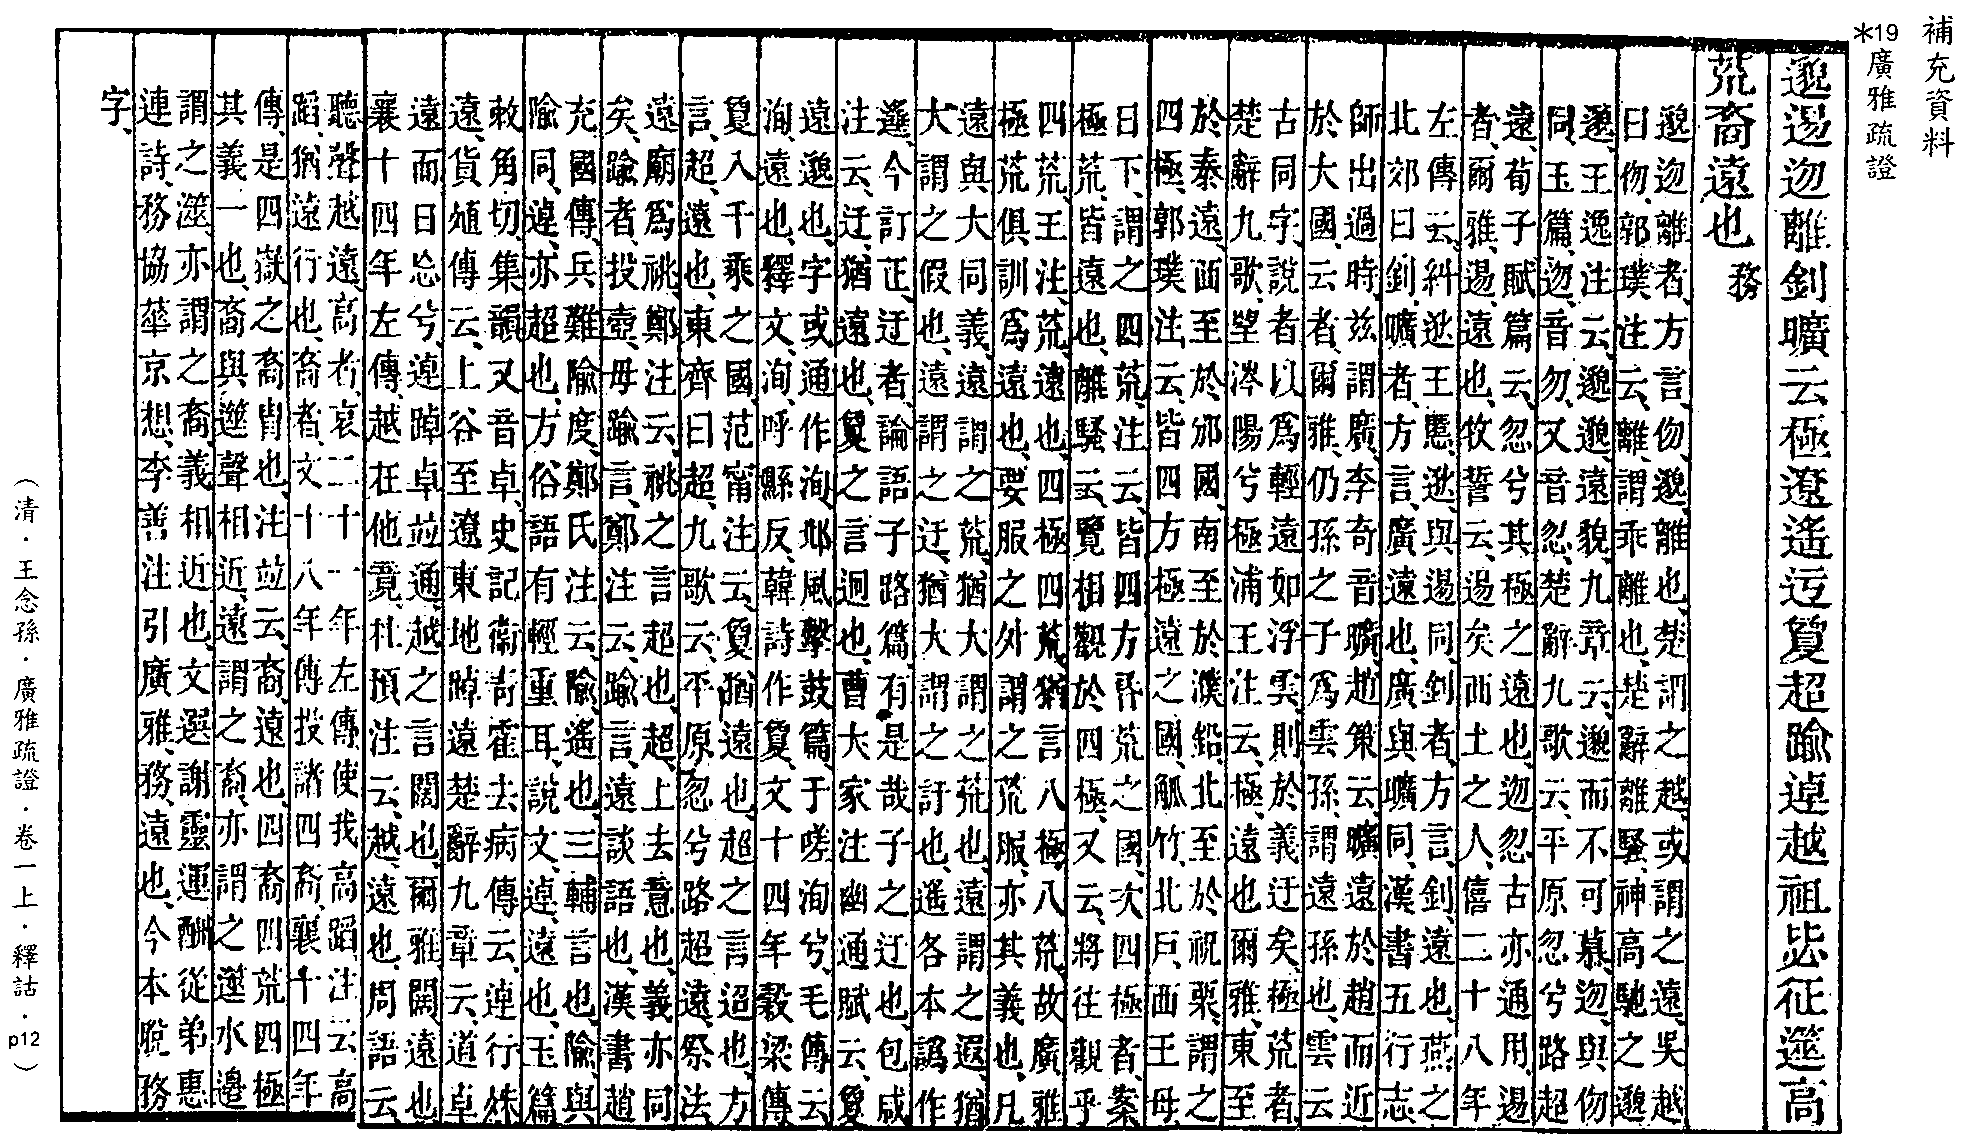 補充資料
*19廣雅疏證
邈逷離釗曠云極遼遙迂敻超踰逴越袓毖征遾高
荒裔遠也 務
邈離者方言伆邈離也楚謂之越或謂之遠吳越
曰伆郭璞注云離謂乖離也楚辭離騷神高馳之邈
邈王逸注云邈邈遠貌九章云邈而不可慕與伆
同玉篇音勿又音忽楚辭九歌云平原忽兮路超
遠荀子賦篇云忽兮其極之遠也忽古亦通用逷
者爾雅逷遠也牧誓云逷矣西土之人僖二十八年
左傳云糾逖王慝逖與逷同釗者方言釗遠也燕之
北郊曰釗曠者方言廣遠也廣與曠同漢書五行志
師出過時茲謂廣李奇音曠趙策云曠遠於趙而近
於大國云者爾雅仍孫之子爲雲孫謂遠孫也雲云
古同字說者以爲輕遠如浮雲則於義迂矣極荒者
楚辭九歌望涔陽兮極浦王注云極遠也爾雅東至
於泰遠西至於邠國南至於濮鉛北至於祝栗謂之
四極郭璞注云皆四方極遠之國觚竹北戶西王母
日下謂之四荒注云皆四方昏荒之國次四極者案
極荒皆遠也離騷云覽相觀於四極又云將往觀乎
四荒王注荒遠也四極四荒猶言八極八荒故廣雅
極荒俱訓爲遠也要服之外謂之荒服亦其義也凡
遠與大同義遠謂之荒猶大謂之荒也遠謂之遐猶
大謂之假也遠謂之迂猶大謂之訏也遙各本譌作
今訂正迂者論語子路篇有是哉子之迂也包咸
注云迂猶遠也敻之言迥也曹大家注幽通賦云敻
遠邈也字或通作洵邶風擊鼓篇于嗟洵兮毛傳云
洵遠也釋文洵呼縣反韓詩作敻文十四年穀梁傳
敻入千乘之國范甯注云敻猶遠也超之言迢也方
言超遠也東齊曰超九歌云平原忽兮路超遠祭法
遠廟爲祧鄭注云祧之言超也超上去意也義亦同
矣踰者投壺毋踰言鄭注云踰言遠談語也漢書趙
充國傳兵難隃度鄭氏注云隃遙也三輔言也隃與
踰同逴亦超也方俗語有輕重耳說文逴遠也玉篇
敕角切集韻又音卓史記衞靑霍去病傳云逴行殊
遠貨殖傳云上谷至遼東地踔遠楚辭九章云道卓
遠而日忘兮逴踔卓竝通越之言闊也爾雅闊遠也
襄十四年左傳越在他竟杜預注云越遠也周語云
聽聲越遠高者哀二十一年左傳使我高蹈注云高
蹈猶遠行也裔者文十八年傳投諸四裔襄十四年
傳是四嶽之裔胄也注竝云裔遠也四裔四荒四極
其義一也裔與遾聲相近遠謂之裔亦謂之遾水邊
謂之澨亦謂之裔義相近也文選謝靈運酬從弟惠
連詩務協華京想李善注引廣雅務遠也今本脫務
字
（清．王念孫．廣雅疏證．卷一上．釋詁．p12）